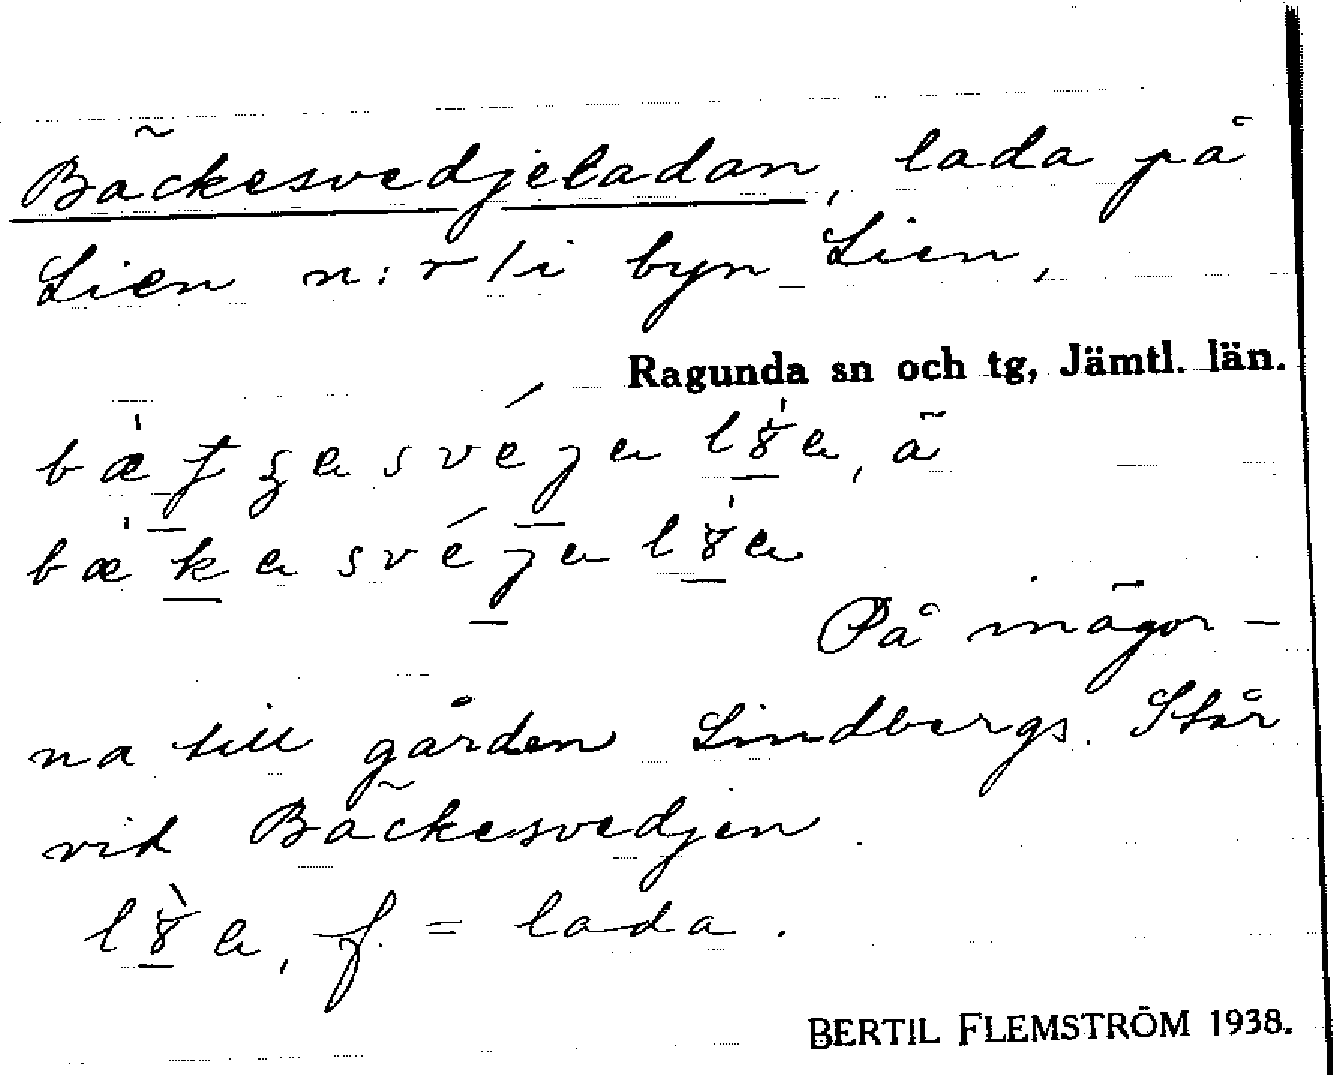 Bäckesvedjeladan, lada på
Lien n:r 1 i byn Lien,
Ragunda sn och tg, Jämtl. län.
ä
På inägor-
na till gården Lindbergs. Står
vid Bäckesvedjen.
f. = lada.
BERTIL FLEMSTRÖM 1938.